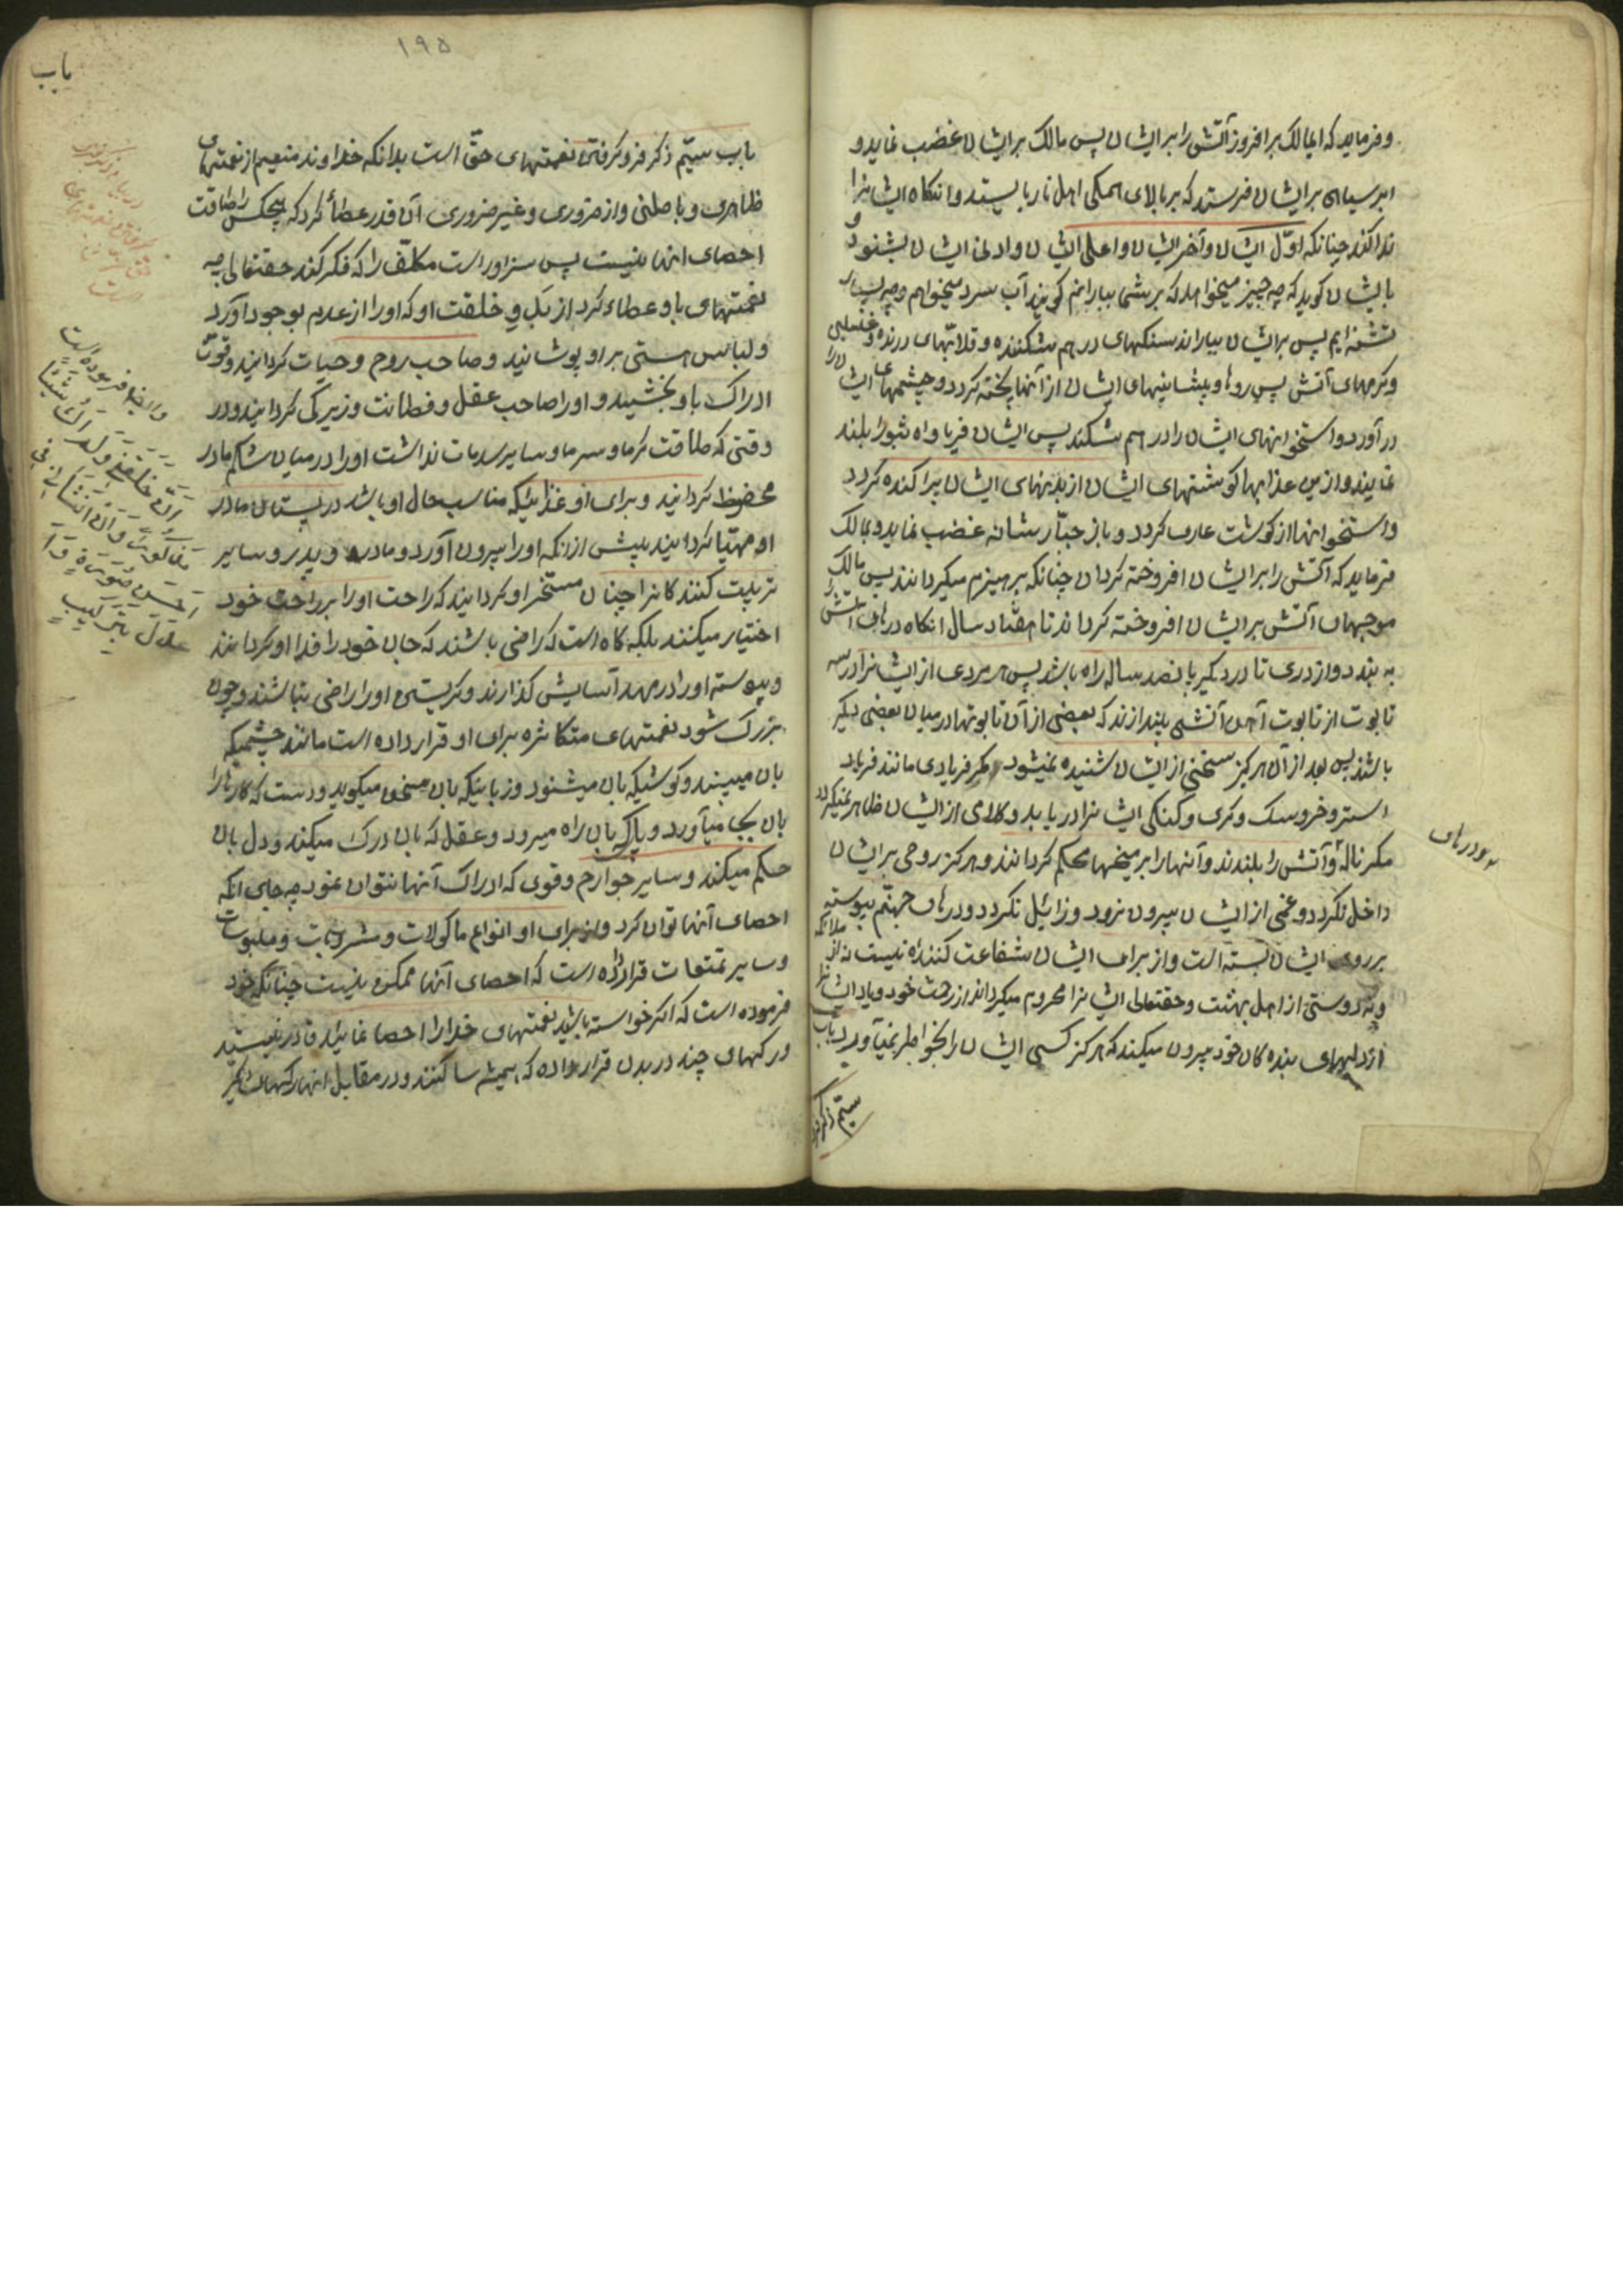 و فرماید که ایمالک برافروز آتش را بر ایشان پس مالک بر ایشان غضب نماید و
ابر سیاهی بر ایشان فرستد که بر بالای همکی اهل نار بایستد و انکاه ایشانرا
ندا کند چنانکه اوّل ایشان و آخر ایشان و اعلی ایشان و ادنی ایشان بشنود و
بایشان کوید که چه چیز میخواهد که بر شما ببارانم کویند آب سرد میخواهم وچه بسیار
تشنه ایم پس بر ایشان ببارانند سنکهای درهم شکننده و قلابهای درنده و غسلین
و کرمهای آتش پس روها و پیشانیهای ایشان از آنها پخته کردد و چشمهای ایشان را
درآورد و استخوانهای ایشان را درهم شکند پس ایشان فریاد واه ثبورا بلند
نمایند و ازین عذابها کوشتهای ایشان از بدنهای ایشان پراکنده کردد
و استخوانها از کوشت عاری کردد و باز جبّار بشانه غضب نماید و بمالک
فرماید که آتش را بر ایشان افروخته کردان چنانکه بر هیزم میکردانند پس مالک
موجهای آتش بر ایشان افروخته کرداند تا هفتاد سال انکاه درهای آتش را
به بندد و از دری تا در دیکر پانصد ساله راه باشد پس هر مردی از ایشانرا در سه
تابوت از تابوت آهن آتشی بیندازند که بعضی از آن تابوتها در میان بعضی دیکر
باشد پس بعد از آن هرکز سخنی از ایشان شنیده نمیشود مکر فریادی مانند فریاد
استر و خروسک و کری و کنکی ایشانرا دریابد و کلامی از ایشان ظاهر نمیکردد
مکر ناله و آتش را بلندند و آنها را بر میخها محکم کردانند و هرکز روحی بر ایشان
داخل نکردد و غمی از ایشان بیرون نرود و زایل نکردد و درهای جهنّم پیوسته
بر روی ایشان بسته است و از برای ایشان شفاعت کننده نیست نه از ملائکه
و نه دوستی از اهل بهشت و حقتعالی ایشانرا محروم میکرداند از رحمت خود و یاد ایشانرا
از دلهای بنده کان خود بیرون میکند که هرکز کسی ایشان را بخاطر نمیآورد باب
سیّم ذکر فرو
و درهای
۱۹۵
باب
باب سیّم ذکر فرو کرفتن نعمتهای حقّ است بدانکه خداوند منعیم از نعمتهای
ظاهری و باطنی و از ضروری و غیر ضروری آن قدر عطا کرد که هیچکس را طاقت
احصای انها نیست پس سزاور است مکلّف را که فکر کند حقتعالی چه
نعمتهای باو عطاء کرد از بدو خلقت او که او را از عدم بوجود آورد
و لباس هستی بر او پوشانید و صاحب روح و حیات کردانید و قوّت
ادراک باو بخشید و او را صاحب عقل و فطانت و زیرکی کردانید و در
وقتی که طاقت کرما و سرما و سایر صدمات نداشت او را در میان شکم مادر
محضوظ کردانید و برای او غذائیکه مناسب حال او باشد در پستان مادر
او مهیّا کردانید پیش از انکه او را بیرون آورد و مادر و پدر و سایر
تربیت کننده کانرا چنان مسخّر او کردانید که راحت او را بر راحت خود
اختیار میکنند بلکه کاه است که راضی باشند که جان خود را فدا او کردانند
و پیوسته او را در مهد آسایش کذارند و کریستن او را راضی نباشند و چون
بزرک شود نعمتهای متکاثره برای او قرار داده است مانند چشمیکه
بان میبیند و کوشیکه بان میشنود و زبانیکه بان سخن میکوید و دست که کارها را
بان بجا میآورد و پائیکه بان راه میرود و عقل که بان درک میکند و دل بان
حکم میکند و سایر جوارح و قوی که ادراک آنها نتوان نمود چه جای انکه
احصای آنها توان کرد و از برای او انواع ماکولات و مشروبات و ملبوسات
و سایر تمتعات قرار داده است که احصای آنها ممکن نیست چنانکه خود
فرموده است که اکر خواسته باشید نعمتهای خدا را احصا نمائید قادر نیستید
و رکهای چند در بدن قرار داده که همیشه ساکنند و در مقابل انها رکهای دیکر
و ایضا فرموده است
خلقنی ولم اک شیئا
احسن صورة
عدل بترکیب